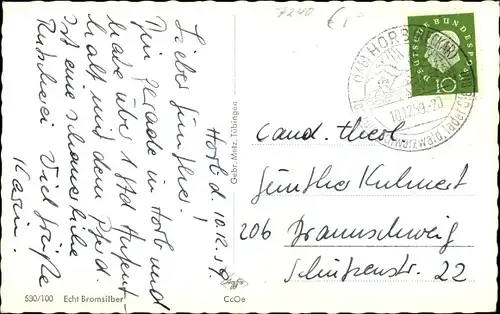 7240
€ 1
(14b) HORB (NECKAR)
10.12.59.-20
DEUTSCHE BUNDESPOST
10
Horb d. 10.12.59.
Lieber Günther!
Bin gerade in Horb und
habe über 1 Std Aufent-
halt mit dem Pferd.
Ist eine schauerliche
Rutscherei Viel Grüße
Karin.
Gebr. Metz, Tübingen
Cand. theol.
Günther Kuhnert
206 Braunschweig
Schützenstr. 22
530/100 Echt Bromsilber
CcOe